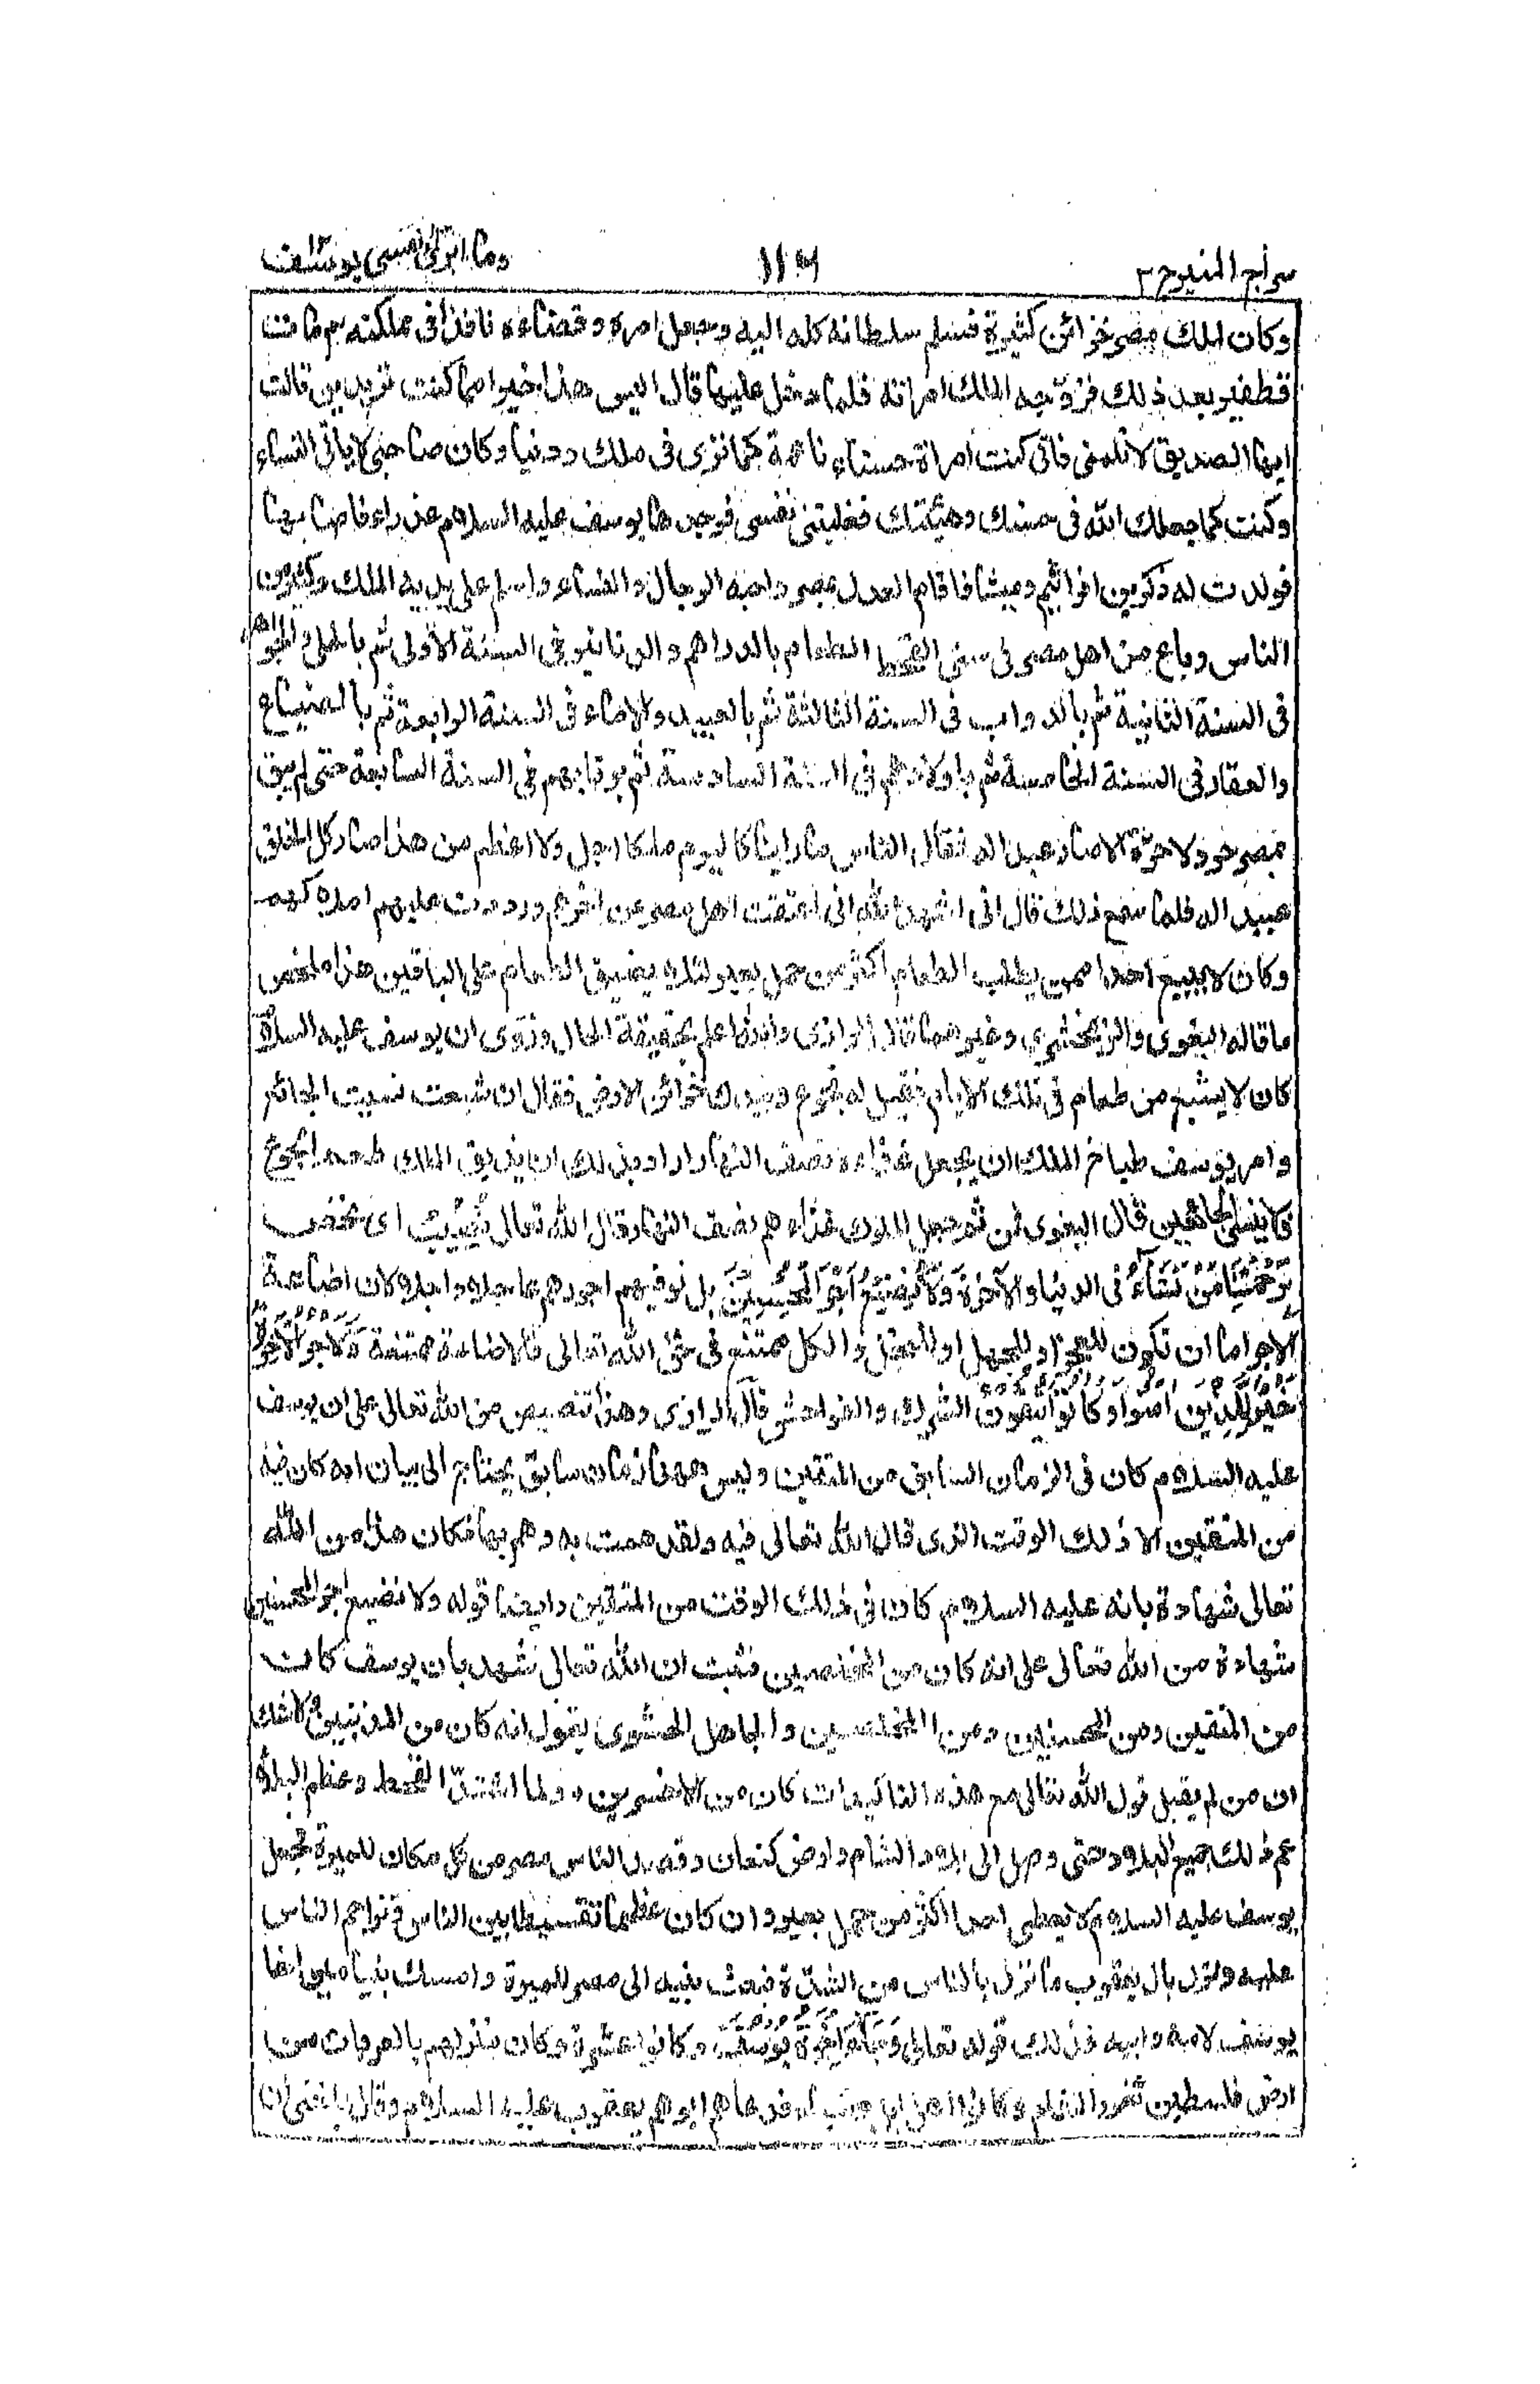 سراج المنير ج ٢ ١١٦ وما ابرئ نفسى يوسف
وكان لملك مصر خزائن كثيرة فسلم سلطانه كله اليه وجعل امره وقضاءه نافذا فى مملكته ثم مات
قطفير بعد ذلك فزوّجه الملك امراته فلما دخل عليها قال اليس هذا خيرا مما كنت تريدين قالت
ايها الصديق لا تلمنى فانى كنت امراة حسناء ناعمة كما ترى فى ملك ودنيا وكان صاحبى لا ياتى النساء
وكنت كما جعلك الله فى حسنك وهيئتك فغلبتنى نفسى فوجدها يوسف عليه السلام عذراء فاصابها
فولدت له ذكرين افراثيم وميشا فاقام العدل بمصر واحبه الرجال والنساء واسلم على يديه الملك وكثير من
الناس وباع من اهل مصر فى سنى القحط الطعام بالدراهم والدنانير فى السنة الاولى ثم بالحلى والجواهر
فى السنة الثانية ثم بالدواب فى السنة الثالثة ثم بالعبيد والاماء فى السنة الرابعة ثم بالضياع
والعقار فى السنة الخامسة ثم باولادهم فى السنة السادسة ثم برقابهم فى السنة السابعة حتى لم يبق
بمصر حر ولا حرّة الا صار عبدا له فقال الناس ما راينا كاليوم ملكا اجل ولا اعظم من هذا صار كل الخلق
عبيد اله فلما سمع ذلك قال انى اشهد الله انى اعتقت اهل مصر عن اخرهم ورددت عليهم املاكهم
وكان لا يبيع احدا ممن يطلب الطعام اكثر من حمل بعير لئلا يضيق الطعام على الباقين هذا ملخص
ما قاله البغوى والزمخشرى وغيرهما قال الرازى والله اعلم بحقيقة الحال وروى ان يوسف عليه السلام
كان لا يشبع من طعام فى تلك الايام فقيل له تجوع وبيدك خزائن الارض فقال ان شبعت نسيت الجائع
وامر يوسف طباخ الملك ان يجعل غداءه نصف النهار اراد بذلك ان يذيق الملك طعم الجوع
فلا ينسى الجائعين قال البغوى فمن ثم جعل الملوك غداءهم نصف النهار قال الله تعالى نُصِيْبُ اى نخص
بِرَحْمَتِنَا مَنْ نَّشَآءُ فى الدنيا والآخرة وَلَا نُضِيْعُ اَجْرَ الْمُحْسِنِيْنَ بل نوفيهم اجورهم عاجلا واجلا لان اضاعة
الاجر اما ان تكون للعجز او للجهل او للبخل والكل ممتنع فى حق الله تعالى فالاضاعة ممتنعة وَلَاَجْرُ الْاٰخِرَةِ
خَيْرٌ لِّلَّذِيْنَ اٰمَنُوْا وَكَانُوْا يَتَّقُوْنَ الشرك والفواحش قال الرازى وهذا تنصيص من الله تعالى على ان يوسف
عليه السلام كان فى الزمان السابق من المتقين وليس ههنا زمان سابق يحتاج الى بيان انه كان فيه
من المتقين الا ذلك الوقت الذى قال الله تعالى فيه ولقد همت به وهم بها فكان هذا من الله
تعالى شهادة بانه عليه السلام كان فى ذلك الوقت من المتقين وايضا قوله ولا نضيع اجر المحسنين
شهادة من الله تعالى على انه كان من المخلصين فثبت ان الله تعالى شهد بان يوسف كان
من المتقين ومن المحسنين ومن المخلصين والجاهل الحشوى يقول انه كان من المذنبين ولا شك
ان من لم يقبل قول الله تعالى مع هذه التاكيدات كان من الاخسرين ولما اشتدّ القحط وعظم البلاء
عم ذلك جميع البلاد حتى وصل الى بلاد الشام وارض كنعان وقصد الناس مصر من كل مكان للميرة فجعل
يوسف عليه السلام لا يعطى احدا اكثر من حمل بعير وان كان عظيما تقسيطا بين الناس فتزاحم الناس
عليه ونزل بال يعقوب ما نزل بالناس من الشدّة فبعث بنيه الى مصر للميرة وامسك بنيامين اخا
يوسف لامه وابيه فذلك قوله تعالى وَجَآءَ اِخْوَةُ يُوْسُفَ وكانوا عشرة وكان منزلهم بالعربات من
ارض فلسطين ثغور الشام وكانوا اهل ابل فدعاهم ابوهم يعقوب عليه السلام وقال يا بنى ان